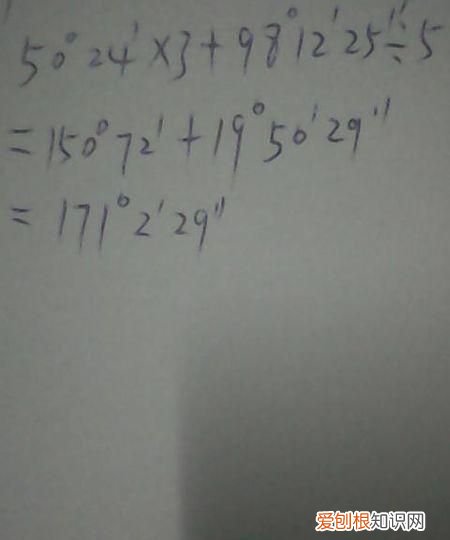 50°24′×3+98°12′25″÷5
=150°72′+19°50′29″
=171°2′29″
爱刨根知识网